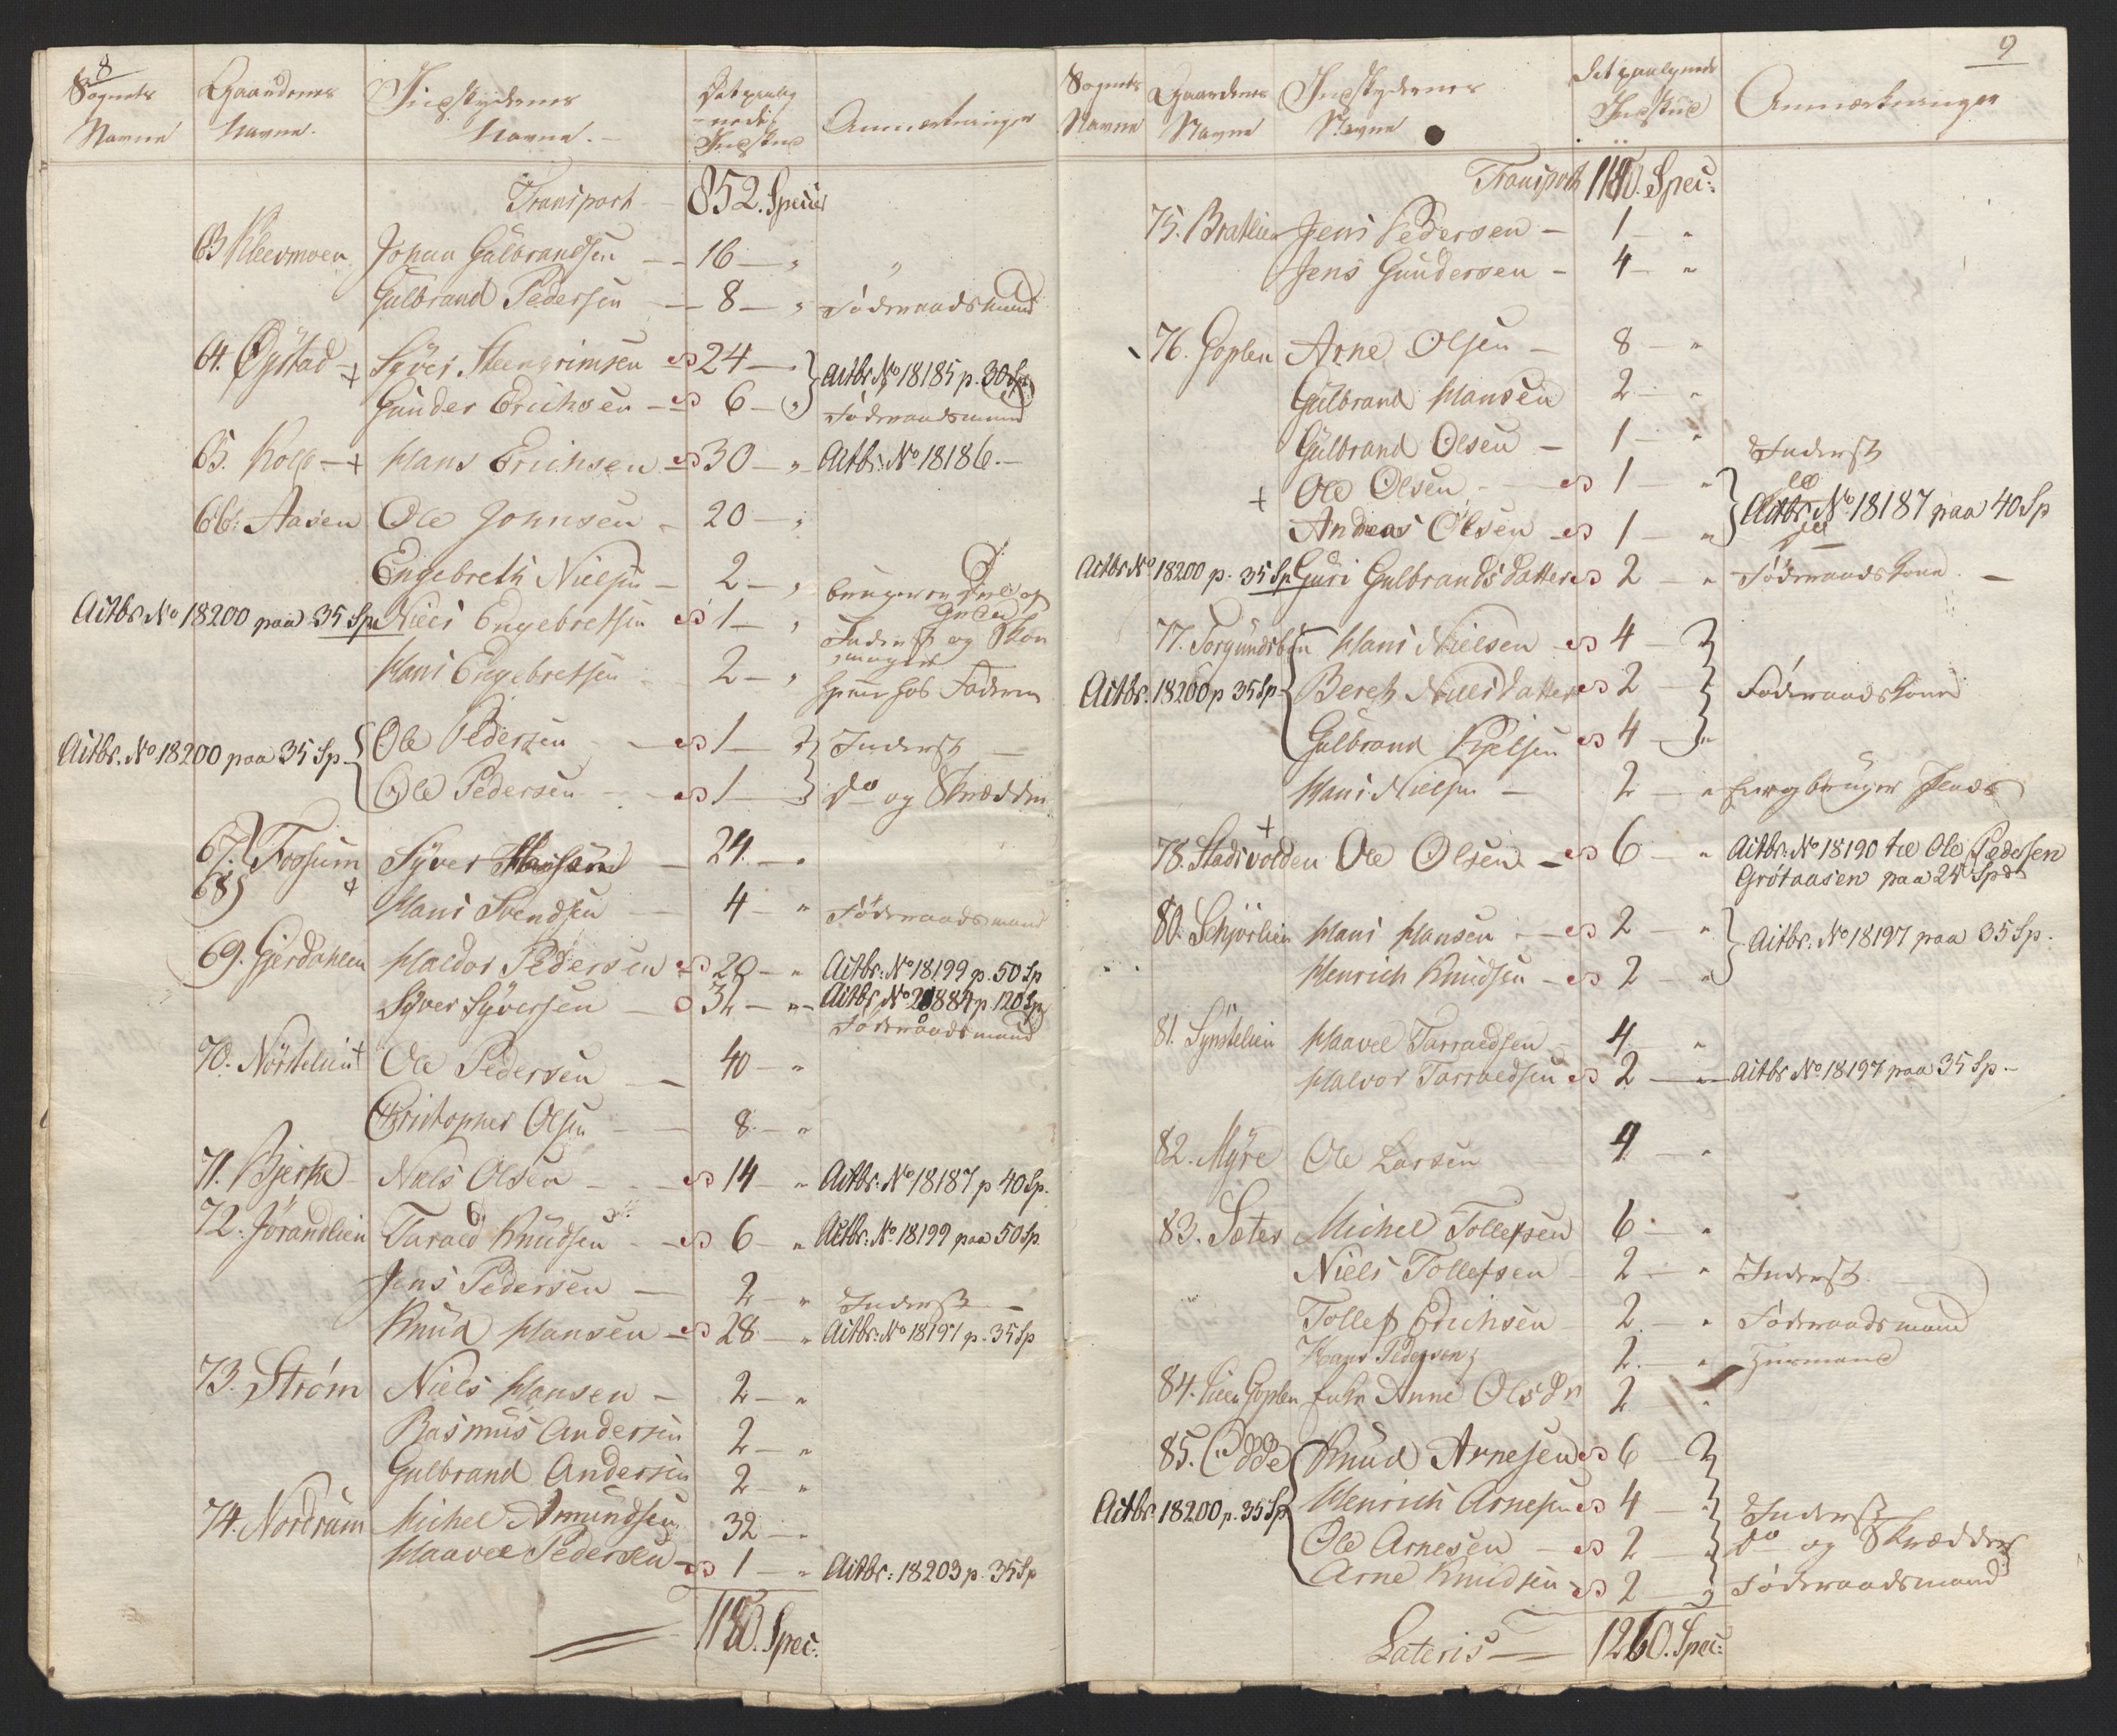 8
Sognets Navne
Gaardenes Navne.
Indskydernes Navne.
Det paalignede Indskud
Anmærkninger
Transport 852. Specier
63 Kleevmoen Johan Gulbrandsen 16 " "
Gulbrand Pedersen 8 " Föderaadsmand
64. Öystad + Syver Steengrimsen 24 } Actbr No 18185 p. 30 Sp
Gunder Erichsen 6 " Föderaadsmand
65. Kolo + Hans Erichsen 30 " Actbr. No 18186.
66. Aasen Ole Johnsen 20 "
Engebreth Nielsen 2 " bruger en Deel af Gaarden
Actbr No 18200 paa 35 Sp Niels Engebretsen 1 " Inderst og Skomager
Hans Engebretsen 2 " hos Faderen
Actbr. No 18200 paa 35 Sp. { Ole Pedersen 1 } Inderst
Ole Pedersen 1 } do og Skrædder
67. 68 } Fossum + Syver Hansen 24 "
Hans Svendsen 4 " Föderaadsmand
69. Gjerdalen Haldor Pedersen 20 " Actbr. No 18199 p. 50 Sp
Syver Syversen 32 " Actbr No 21884 p. 120 Sp
Föderaadsmand
70. Nörstelien + Ole Pedersen 40 "
Christopher Olsen 8 "
71. Bjerke Niels Olsen 14 " Actbr. No 18187 p 40 Sp.
72. Jörandlien Tarald Knudsen 6 " Actbr. No 18199 paa 50 Sp.
Jens Pedersen 2 " Inderst
Knud Hansen 28 " Actbr. No 18197 p. 35 Sp
73. Ström Niels Hansen 2 "
Rasmus Andersen 2 "
Gulbrand Andersen 2 "
74. Nordrum Michel Amundsen 32 "
Haavel Pedersen 1 " Actbr: 18203 p. 35 Sp
1180. Spec:
9
Sognets Navne
Gaardenes Navne
Indskydernes Navne
Det paalignede Indskud
Anmærkninger
Transport 1180. Spec:
75. Bratlien Jens Pedersen 1 "
Jens Gundersen 4 "
76. Goplen Arne Olsen 8 "
Gulbrand Hansen 2 "
Gulbrand Olsen 1 " Inderst
+ Ole Olsen 1 " do
Andreas Olsen 1 " } Actbr No 18187 paa 40 Sp
Actbr No 18200 p. 35 Sp Guri Gulbrandsdatter 2 " Föderaadskone
77. Torgundsbön Hans Nielsen 4
Actbr. 18200 p 35 Sp { Bereth Nielsdatter 2 Föderaadskone
Gulbrand Kjelsen 4 "
Hans Nielsen 2 " bruger Plads
78. Stadsvolden + Ole Olsen 6 " Actbr. No 18190 til Ole Pedersen
Grötaasen paa 24 Spd
80. Schjörlien Hans Hansen 2 " } Actbr. No 18197 paa 35 Sp.
Henrich Knudsen 2 "
81. Synstelien Haavel Tarraldsen 4 "
Halvor Tarraldsen 2 " Actbr No 18197 paa 35 Sp.
82. Myre Ole Larsen 4 "
83. Sæter Michel Tollefsen 6 "
Niels Tollefsen 2 " Inderst
Tollef Erichsen 2 " Föderaadsmand
Hans Pedersen 2 " Huusmand
84. Lien Goplen Enke Anne Olsdr 2 "
85. Odde Knud Arnesen 6
Actbr. 18200 p. 35 Sp { Henrich Arnesen 4 Inderst
Ole Arnesen 2 do og Skrædder
Arne Knudsen 2 Föderaadsmand
Lateris 1260. Spec: